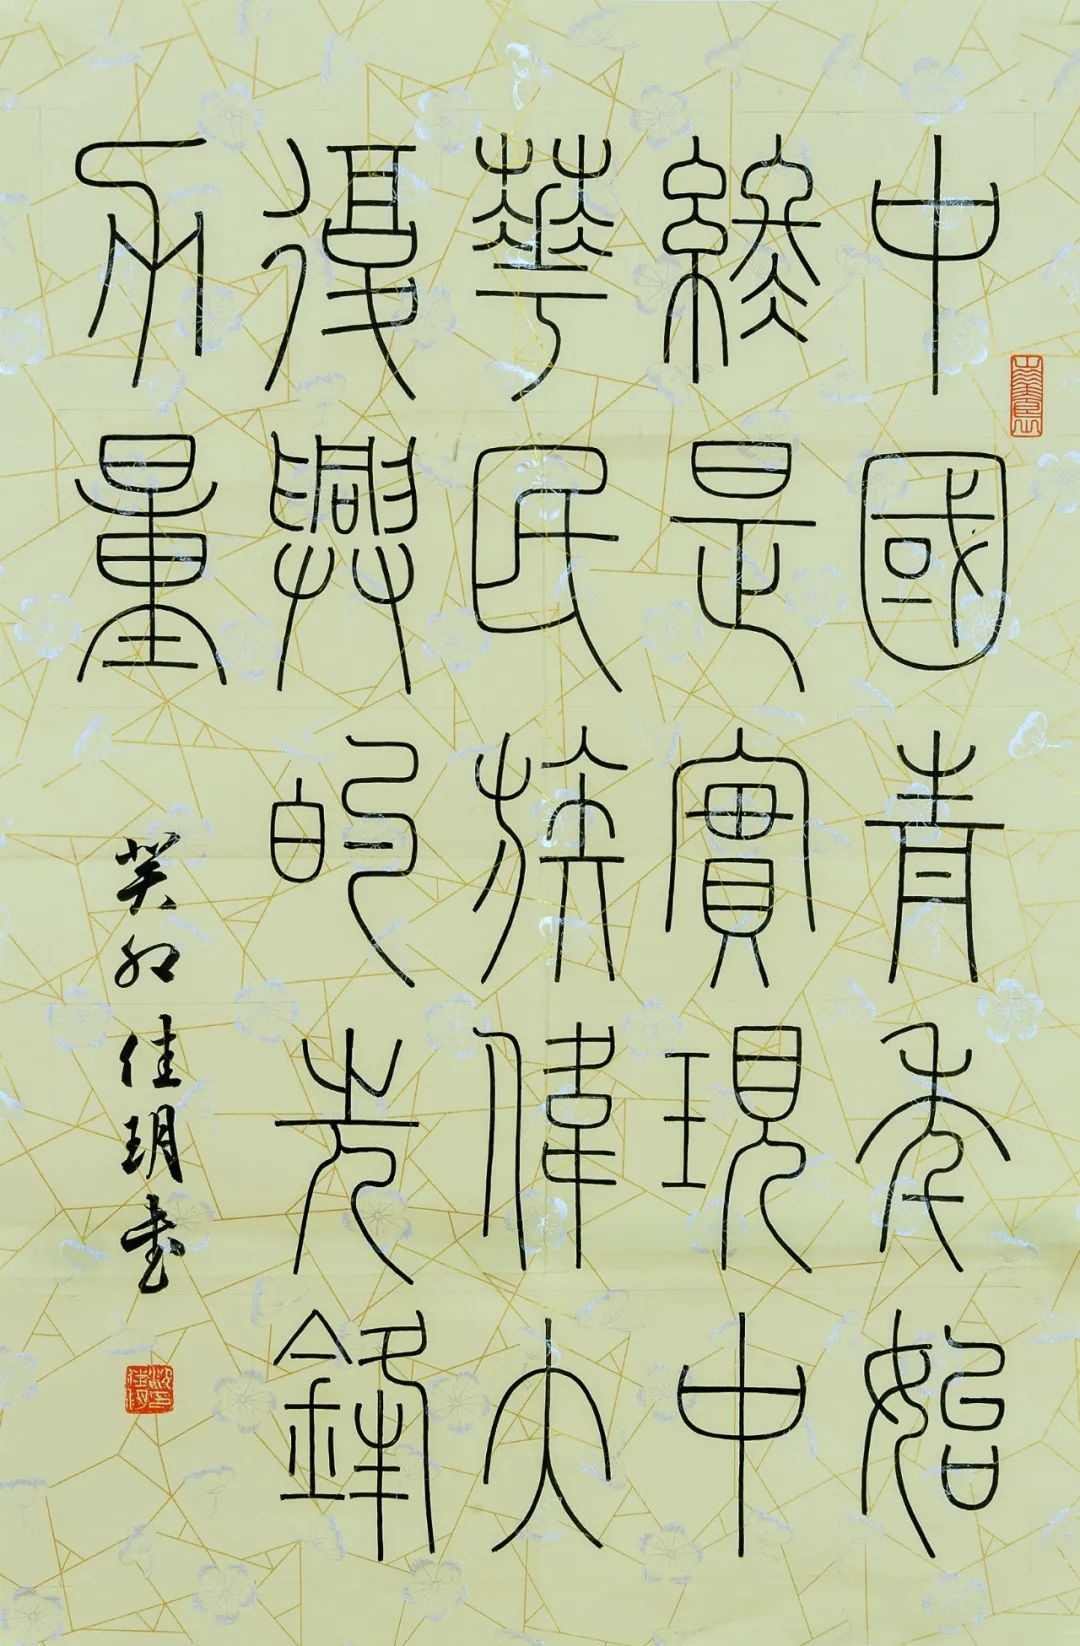 中國青年始
終是實現中
華民族偉大
復興的先鋒
力量
癸卯佳玥書